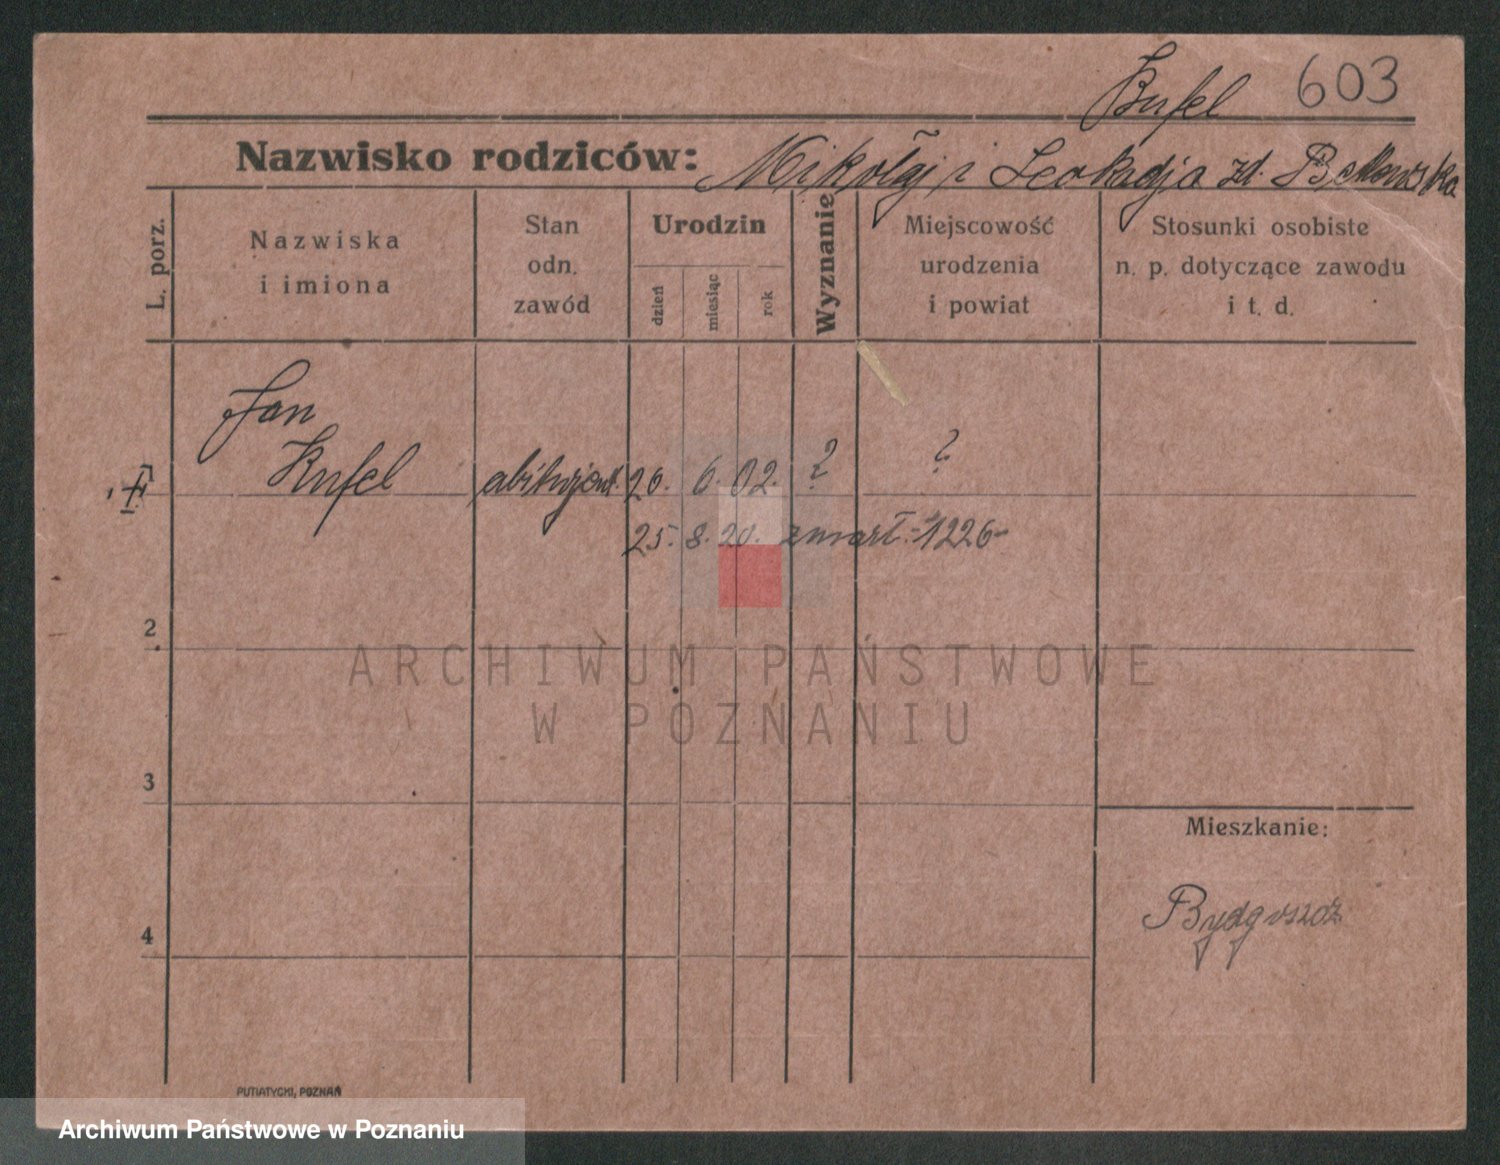 Kufel 603
Nazwisko rodziców: Mikołaj i Leokadja zd.
L. porz.
Nazwiska
i imiona
Stan
odn.
zawód
Urodzin
dzień
miesiąc
rok
Wyznanie
Miejscowość
urodzenia
i powiat
Stosunki osobiste
n. p. dotyczące zawodu
i t. d.
Jan
Kufel abiturjent. 26. 6. 02. ? ?
25. 8. 20. zmarł - 1226 -
2
3
4
Mieszkanie:
Bydgoszcz
PUTIATYCKI, POZNAŃ
ARCHIWUM PAŃSTWOWE
W POZNANIU
Archiwum Państwowe w Poznaniu